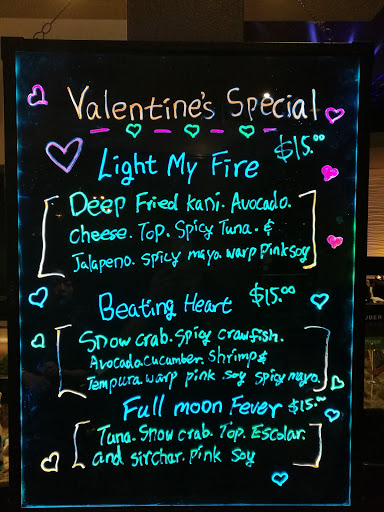 Valentine's Special
Light My Fire $15.00
Deep Fried Kani. Avocado.
Cheese. Top. Spicy Tuna. &
Jalapeno. Spicy mayo. warp pink soy
Beating Heart $15.00
Snow crab. Spicy crawfish.
Avocado. cucumber. shrimp &
Tempura. warp pink soy spicy mayo.
Full moon Fever $15.00
Tuna. Snow crab. Top. Escolar.
and sirchar. pink soy